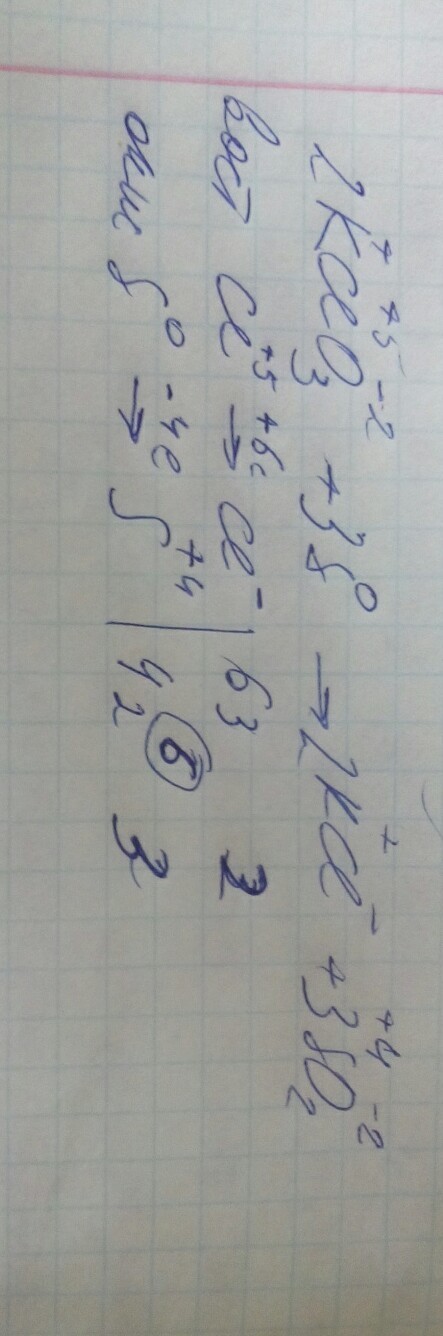 2K⁺Cl⁺⁵O₃⁻² + 3S⁰ → 2K⁺Cl⁻ + 3S⁺⁴O₂⁻²
вост Cl⁺⁵ +6e → Cl⁻ | 6 3 2
окис S⁰ -4e → S⁺⁴ | 4 2 ⑥ 3